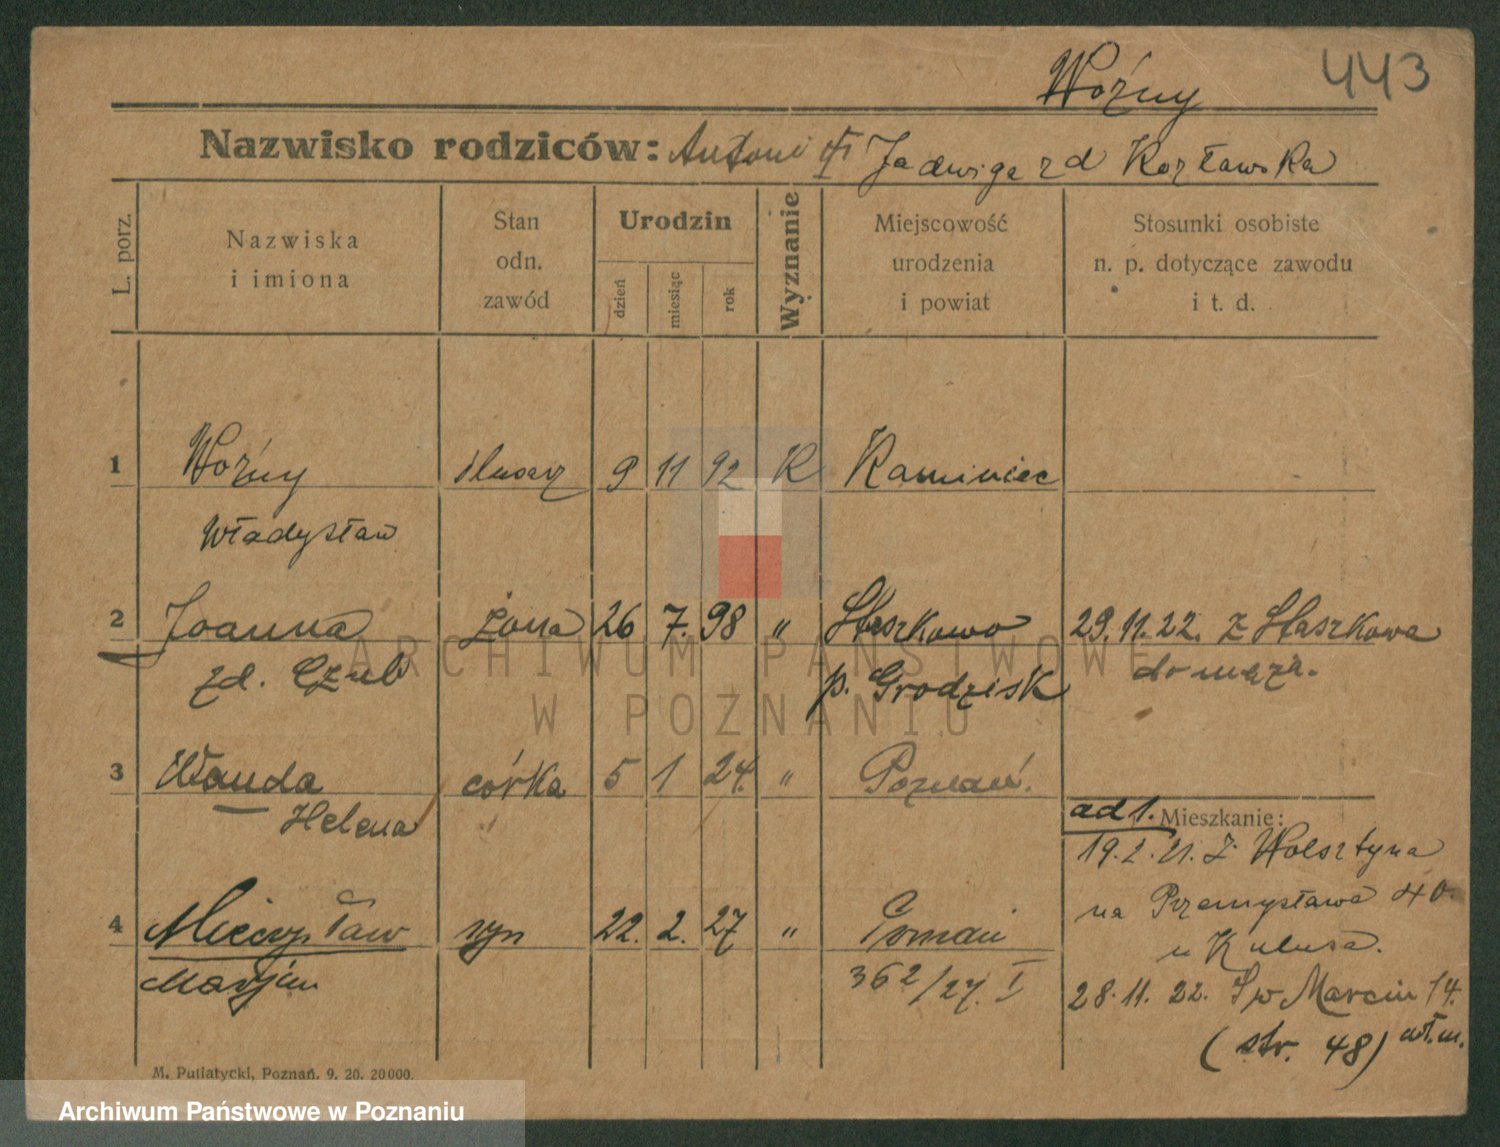 Woźny 443
Nazwisko rodziców: Antoni i Jadwiga zd Kozławska
L. porz.
Nazwiska
i imiona
Stan
odn.
zawód
Urodzin
dzień
miesiąc
rok
Wyznanie
Miejscowość
urodzenia
i powiat
Stosunki osobiste
n. p. dotyczące zawodu
i t. d.
1 Woźny ślusarz 9 11 92 K Kaminiec
Władysław
2 Joanna żona 26 7. 98 " Staszkowo 29.11.22. z Staszkowa
zd. Czub p. Grodzisk do męża.
3 Wanda córka 5 1 24. " Poznań.
Helena
ad 1. Mieszkanie:
19.2.21. z Wolsztyna
na Przemysława 40.
u Kulusa.
4 Mieczysław syn 22. 2. 27 " Poznań
Marjan 362/27. I
28.11.22. Św Marcin 14.
(str. 48) wł.m.
M. Putiatycki, Poznań. 9. 20. 20000.
ARCHIWUM PAŃSTWOWE
W POZNANIU
Archiwum Państwowe w Poznaniu